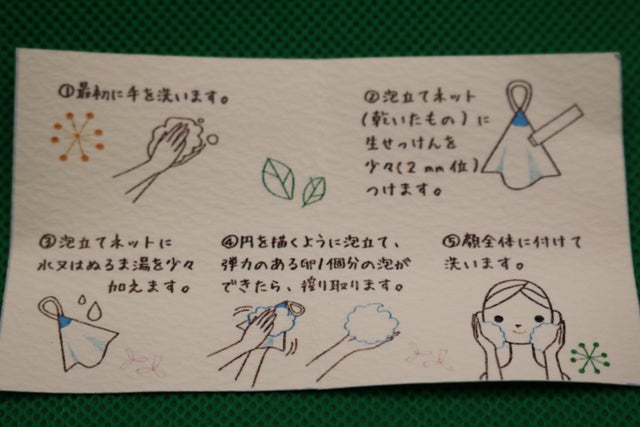 ①最初に手を洗います。
②泡立てネット
(乾いたもの)に
生せっけんを
少々(2mm位)
つけます。
③泡立てネットに
水又はぬるま湯を少々
加えます。
④円を描くように泡立て、
弾力のある卵1個分の泡が
できたら、搾り取ります。
⑤顔全体に付けて
洗います。